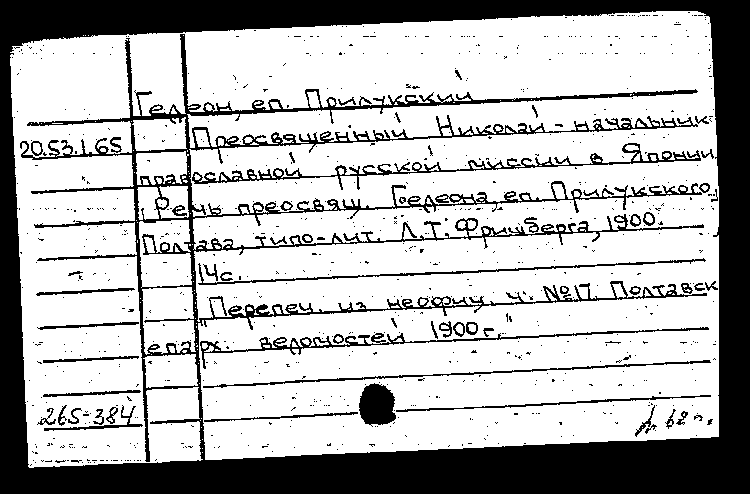 Гедеон, еп. Прилукский
20.53.1.65 Преосвященный Николай - начальник
православной русской миссии в Японии.
Речь преосвящ. Гедеона, еп. Прилукского.
Полтава, типо-лит. Л.Т. Фришберга, 1900.
14с.
"Перепеч. из неофиц. ч. №17. Полтавск
епарх. ведомостей 1900г."
265-384